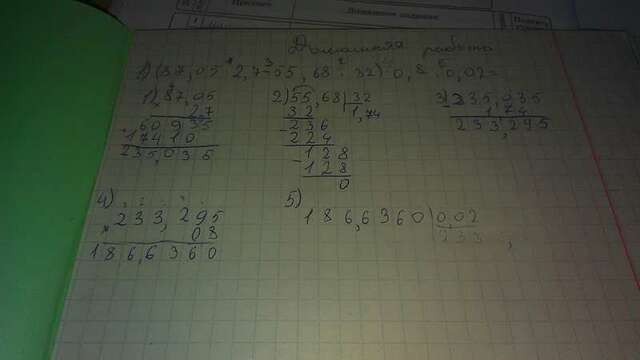 Домашняя работа
1) (87,05 * 2,7 - 55,68 : 32) · 0,8 : 0,02 =
1) 87,05
2,7
+ 60 935
17410
235,035
2) 55,68 | 32
32 1,74
- 236
224
- 128
128
0
3) 235,035
1,74
233,295
4)
× 233,295
08
186,6360
5)
186,6360 | 0,02
233